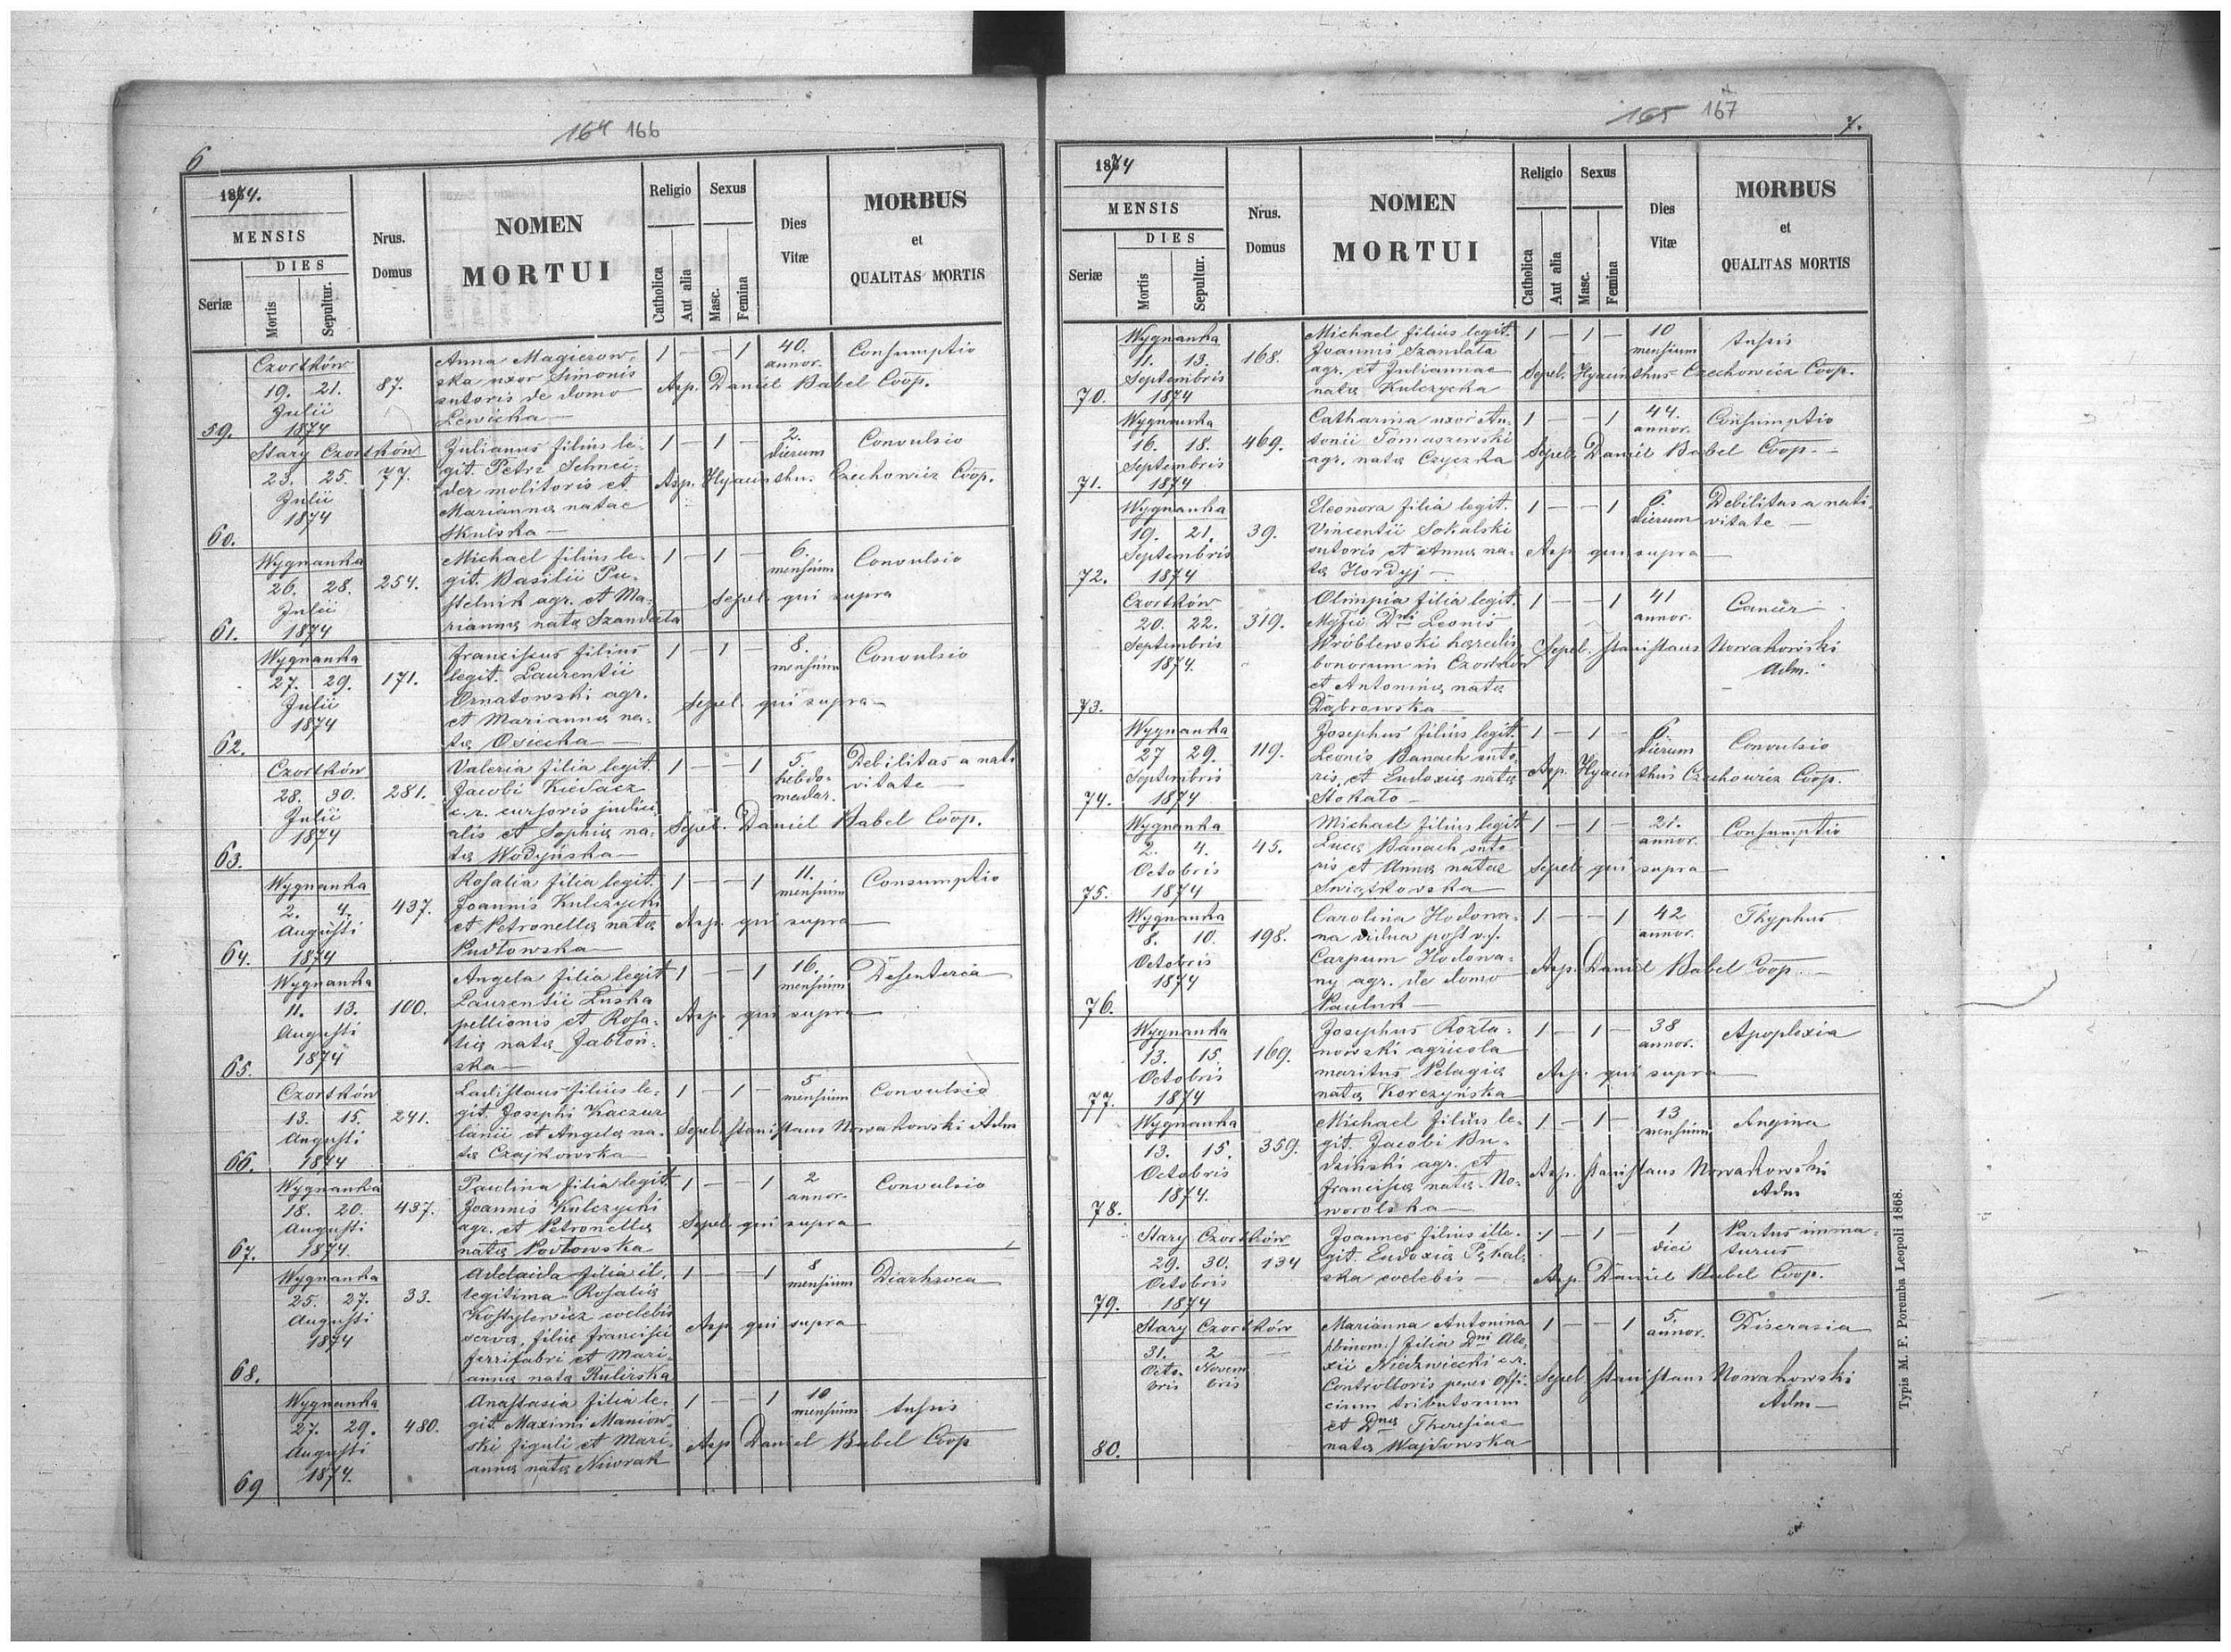 164 166
6
1874.
MENSIS
DIES
Seriæ
Mortis
Sepultur.
Nrus.
Domus
NOMEN
MORTUI
Religio
Catholica
Aut alia
Sexus
Masc.
Femina
Dies
Vitæ
MORBUS
et
QUALITAS MORTIS
59.
Czortków
19. 21.
Julii
1874
87.
Anna Magierow-
ska uxor Simonis
sutoris de domo
Lewicka
1 — — 1
40.
annor.
Consumptio
Asp. Daniel Babel Coop.
60.
Stary Czortków
23. 25.
Julii
1874
77.
Julianus filius le-
git. Petri Schnei-
der molitoris et
Marianna natae
Skulska
1 — 1 —
2.
dierum
Convulsio
Asp. Hyacinthu. Czechowicz Coop.
61.
Wygnanka
26. 28.
Julii
1874
254.
Michael filius le-
git. Basilii Pu-
stelnik agr. et Ma-
rianna nata Szandata
1 — 1 —
6.
mensium
Convulsio
Sepel. qui supra
62.
Wygnanka
27. 29.
Julii
1874
171.
Franciscus filius
legit. Laurentii
Ornatowski agr.
et Marianna na-
ta Osiecka
1 — 1 —
8.
mensium
Convulsio
Sepel. qui supra
63.
Czortków
28. 30.
Julii
1874
281.
Valeria filia legit.
Jacobi Kiedacz
c. r. cursoris judici-
alis et Sophia na-
ta Wodyńska
1 — — 1
5.
hebdo-
madar.
Debilitas a nati
vitate
Sepel. Daniel Babel Coop.
64.
Wygnanka
2. 4.
Augusti
1874
437.
Rosalia filia legit.
Joannis Kulczycki
et Petronella nata
Pudłowska
1 — — 1
11.
mensium
Consumptio
Asp. qui supra
65.
Wygnanka
11. 13.
Augusti
1874
100.
Angela filia legit
Laurentii Luska
pellionis et Rosa-
lia nata Jabłoń-
ska
1 — — 1
16.
mensium
Desenteria
Asp. qui supra
66.
Czortków
13. 15.
Augusti
1874
241.
Ladislaus filius le-
git. Josephi Kaczur
lanii et Angela na-
ta Czajkowska
1 — 1 —
5
mensium
Convulsio
Sepel. Stanislaus Nowakowski Adm
67.
Wygnanka
18. 20.
Augusti
1874.
437.
Paulina filia legit.
Joannis Kulczycki
agr. et Petronella
nata Podłowska
1 — — 1
2
annor.
Convulsio
Sepel. qui supra
68.
Wygnanka
25. 27.
Augusti
1874
33.
Adelaida filia il-
legitima Rosalia
Kostylewicz coelebis
serva, filia Francisci
ferrifabri et Mari-
anna nata Rulirska
1 — — 1
8
mensium
Diarhoea
Asp qui supra
69
Wygnanka
27. 29.
Augusti
1874.
480.
Anastasia filia le-
git. Maximi Maniow-
ski figuli et Mari-
anna nata Niwrak
1 — — 1
10
mensium
tussis
Asp Daniel Babel Coop
165 167
7.
1874
MENSIS
DIES
Seriæ
Mortis
Sepultur.
Nrus.
Domus
NOMEN
MORTUI
Religio
Catholica
Aut alia
Sexus
Masc.
Femina
Dies
Vitæ
MORBUS
et
QUALITAS MORTIS
70.
Wygnanka
11. 13.
Septembris
1874
168.
Michael filius legit.
Joannis Szandata
agr. et Juliannae
nata Kulczycka
1 — 1 —
10
mensium
tussis
Sepel. Hyacinthus Czechowicz Coop.
71.
Wygnanka
16. 18.
Septembris
1874
469.
Catharina uxor An-
tonii Tomaszewski
agr. nata Czyczka
1 — — 1
44.
annor.
Consumptio
Sepel. Daniel Babel Coop.
72.
Wygnanka
19. 21.
Septembris
1874
39.
Eleonora filia legit.
Vincentii Sokalski
sutoris et Anna na-
ta Hordyj
1 — — 1
6.
dierum
Debilitas a nati-
vitate
Asp. qui supra
73.
Czortków
20. 22.
Septembris
1874.
319.
Olimpia filia legit.
Mgfci Dni Leonis
Wróblewski haeredis
bonorum in Czortków
et Antonina nata
Dąbrowska
1 — — 1
41
annor.
Cancer
Sepel. Stanislaus Nowakowski
Adm.
74.
Wygnanka
27 29.
Septembris
1874
119.
Josephus filius legit.
Leonis Banach suto-
ris, et Eudoxia nata
Stokało
1 — 1 —
6.
dierum
Convulsio
Asp. Hyacinthus Czechowicz Coop.
75.
Wygnanka
2. 4.
Octobris
1874
45.
Michael filius legit
Luca Banach suto-
ris et Anna natae
Swiątkowska
1 — 1 —
21.
annor.
Consumptio
Sepel. qui supra
76.
Wygnanka
8. 10.
Octobris
1874
198.
Carolina Hodowa-
na vidua post def.
Carpum Hodowa-
ny agr. de domo
Pauluk
1 — — 1
42
annor.
Thyphus
Asp. Daniel Babel Coop.
77.
Wygnanka
13. 15
Octobris
1874
169.
Josephus Kozła-
nowski agricola
maritus Pelagia
nata Korczyńska
1 — 1 —
38
annor.
Apoplexia
Asp. qui supra
78.
Wygnanka
13. 15.
Octobris
1874.
359.
Michael filius le-
git. Jacobi Bu-
dziński agr. et
Francisca nata No-
worolska
1 — 1 —
13
mensium
Angina
Asp. Stanislaus Nowakowski
Adm
79.
Stary Czortków
29. 30.
Octobris
1874
134
Joannes filius ille-
git. Eudoxia Pękal-
ska coelebis
1 — 1 —
1
diei
Partus imma-
turus
Asp. Daniel Babel Coop.
80.
Stary Czortków
31. 2
Octo- Novem
bris bris
Marianna Antonina
/:binom:/ filia Dni Ale-
xii Niedzwiecki c. r.
Controlloris penes Offi-
cium tributorum
et Dna Theresiae
nata Wajdowska
1 — — 1
5.
annor.
Discrasia
Sepel Stanislaus Nowakowski
Adm
Typis M. F. Poremba Leopoli 1868.